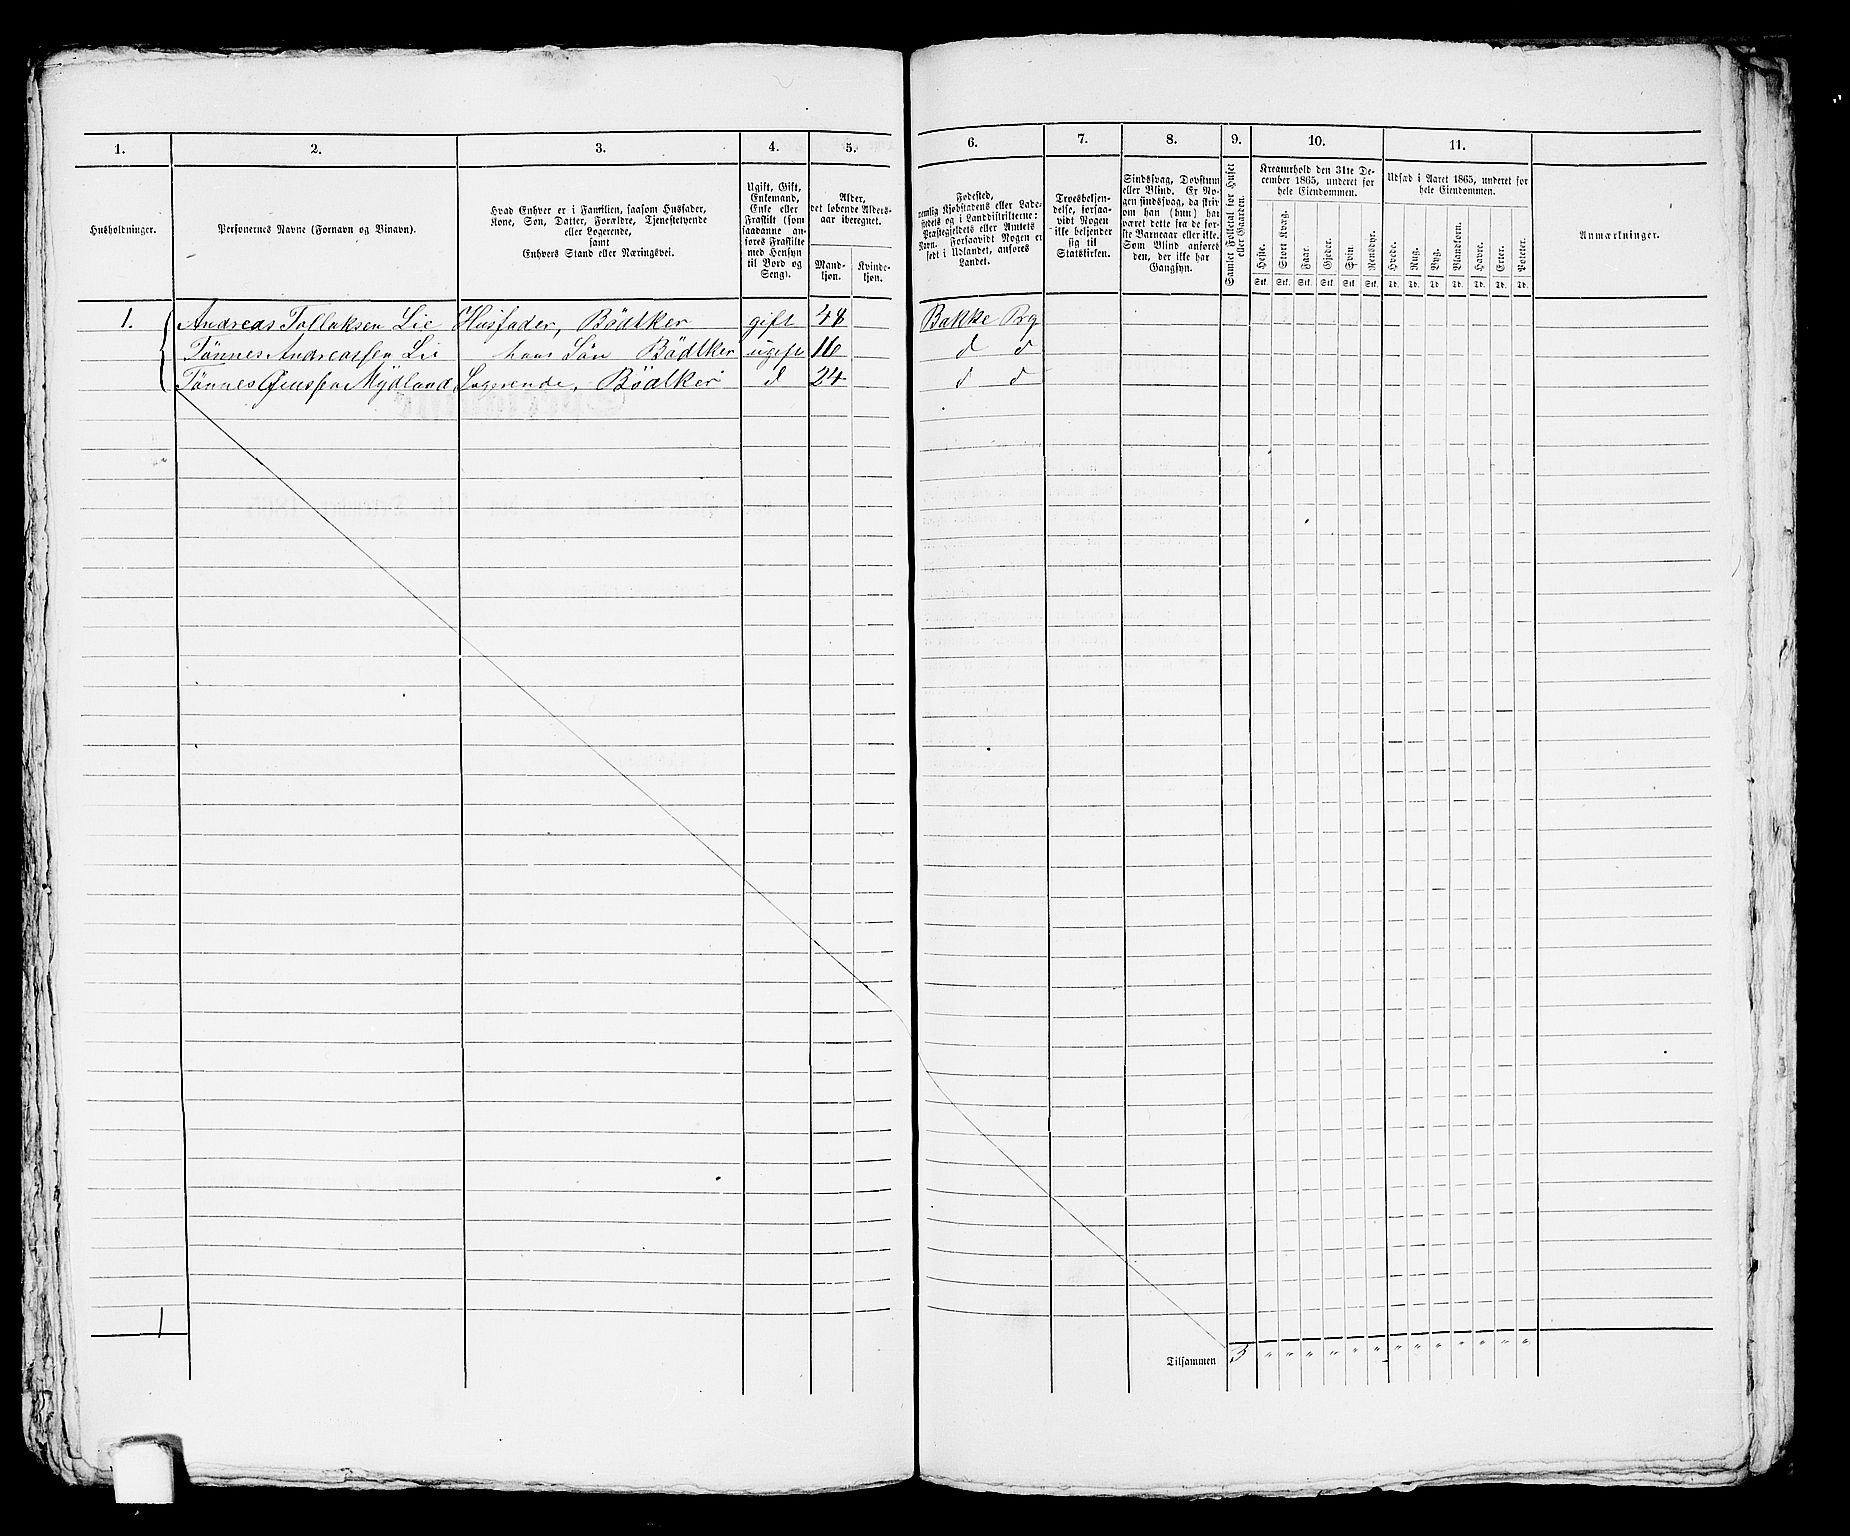 1. 2. 3. 4. 5. 6. 7. 8. 9. 10. 11.
Husholdninger.
Personernes Navne (Fornavn og Binavn).
Hvad Enhver er i Familien, saasom Husfader,
Kone, Søn, Datter, Forældre, Tjenestetyende
eller Logerende,
samt
Enhvers Stand eller Næringsvei.
Ugift, Gift,
Enkemand,
Enke eller
Fraskilt (som
saadanne anføres Fraskilte
med Hensyn
til Bord og
Seng).
Alder,
det løbende Aldersaar iberegnet.
Mandkjøn.
Kvindekjøn.
Fødested,
nemlig Kjøbstadens eller Ladestedets og i Landdistrikterne:
Præstegjeldets eller Amtets
Navn. Forsaavidt Nogen er
født i Udlandet, anføres
Landet.
Troesbekjendelse, forsaavidt Nogen
ikke bekjender
sig til
Statskirken.
Sindssvag, Døvstum
eller Blind. Er Nogen sindssvag, da skrives om han (hun) har
været dette fra de første Barneaar eller ikke.
Som Blind anføres
den, der ikke har
Gangsyn.
Samlet Folketal for Huset
eller Gaarden.
Kreaturhold den 31te December 1865, underet for
hele Eiendommen.
Heste. Stort Kvæg. Faar. Gjeder. Sviin. Rensdyr.
Stk. Stk. Stk. Stk. Stk. Stk.
Udsæd i Aaret 1865, underet for
hele Eiendommen.
Hvede. Rug. Byg. Blandkorn. Havre. Erter. Poteter.
Td. Td. Td. Td. Td. Td. Td.
Anmærkninger.
1. Andreas Tollaksen Lie Husfader, Bödtker gift 48 Bakke Prg
Tönnes Andreassen Lie hans Sön Bödtker ugift 16 d d
Tönnes Mydland Logerende, Bödtker d 24 d d
1
Tilsammen 3 " " " " " " " " " " " " "